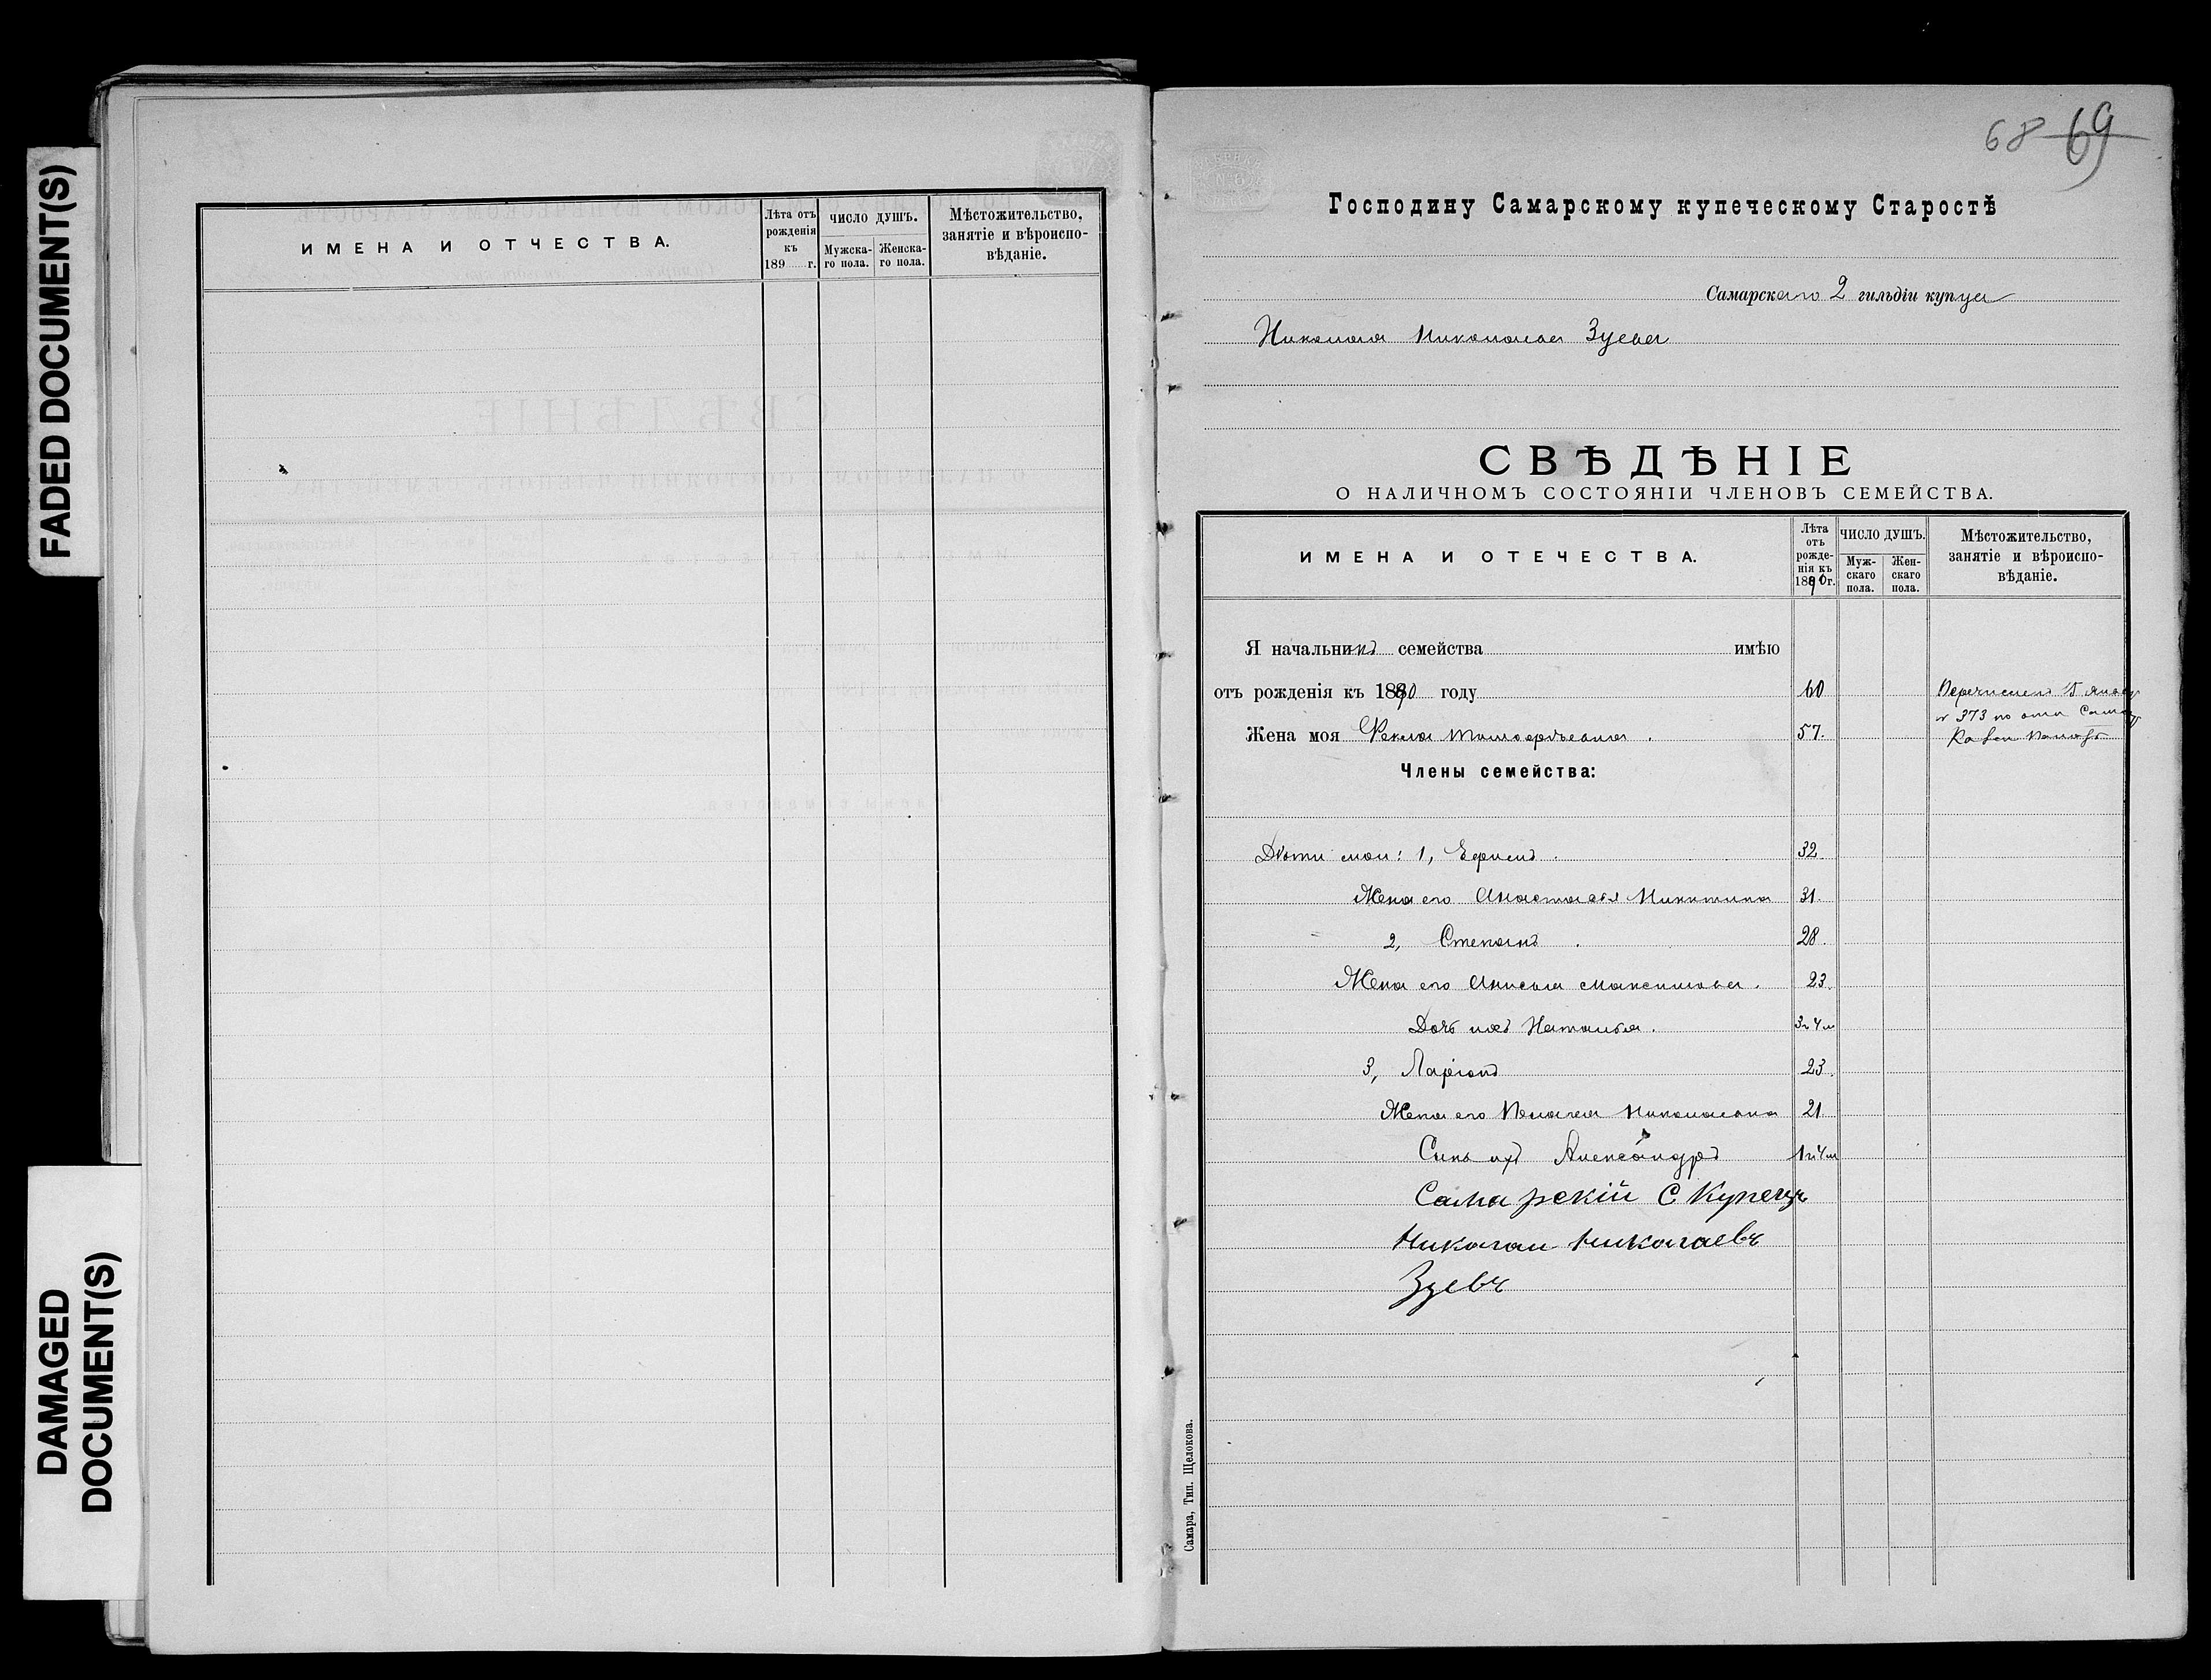 FADED DOCUMENT(S)
DAMAGED
DOCUMENT(S)
ИМЕНА И ОТЧЕСТВА.
Лѣта отъ
рожденія
къ
189 г.
ЧИСЛО ДУШЪ.
Мужска-
го пола.
Женска-
го пола.
Мѣстожительство,
занятіе и вѣроиспо-
вѣданіе.
68 69
Господину Самарскому купеческому Старостѣ
Самарскаго 2 гильдіи купца
Николая Николаева Зуева
СВѢДѢНІЕ
О НАЛИЧНОМЪ СОСТОЯНІИ ЧЛЕНОВЪ СЕМЕЙСТВА.
ИМЕНА И ОТЕЧЕСТВА.
Лѣта
отъ
рожде-
нія къ
1890 г.
ЧИСЛО ДУШЪ.
Муж-
скаго
пола.
Жен-
скаго
пола.
Мѣстожительство,
занятіе и вѣроиспо-
вѣданіе.
Я начальникъ семейства имѣю
отъ рожденія къ 1890 году 60
Перечисленъ 15
№ 373 по
Жена моя Фекла 57.
Члены семейства:
Дѣти мои: 1, Ефимъ. 32
Жена его Анастасья Никитина 31.
2, Степанъ. 28.
Жена его Анисья Максимова. 23.
Дочь ихъ Наталья. 3 г 4 м
3, Ларіонъ 23.
Жена его Пелагея Николаевна 21.
Сынъ ихъ Александръ 1 г 4 м
Самарскій С Купецъ
Николаи Николаевъ
Зуевъ
Самара, Тип. Щелокова.